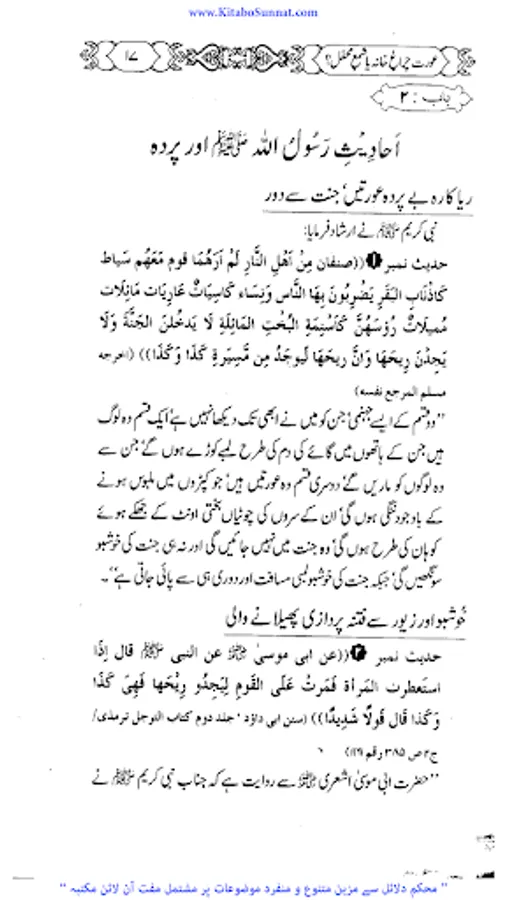 www.KitaboSunnat.com
عورت چراغ خانہ یا شمع محفل؟ ۱۷
باب : ۲
اَحادِیثِ رَسُولُ اللہ ﷺ اور پردہ
ریاکارہ بے پردہ عورتیں' جنت سے دور
نبی کریم ﷺ نے ارشاد فرمایا:
حدیث نمبر ❶ ((صنفان مِنْ اَهْلِ النَّارِ لَمْ اَرَهُمَا قوم مَعَهُم سَیاط
کَاَذْنَابِ البَقَرِ یَضْرِبُونَ بِهَا النَّاس وَنِسَاء کَاسِیَاتٌ عَارِیَات مَائِلَات
مُمِیلَاتٌ رُؤسَهُنَّ کَاَسْنِمَةِ الْبُخْتِ المَائِلَةِ لَا یَدخُلنَ الجَنَّةَ وَلَا
یَجِدْنَ رِیحَهَا وَاِنَّ رِیحَهَا لَیوجَدُ مِن مَّسِیرَةِ کَذَا وَکَذَا)) (اخرجه
مسلم المرجع نفسه)
''دو قسم کے ایسے جہنمی' جن کو میں نے ابھی تک دیکھا نہیں ہے' ایک قسم وہ لوگ
ہیں جن کے ہاتھوں میں گائے کی دم کی طرح لمبے کوڑے ہوں گے' جن سے
وہ لوگوں کو ماریں گے' دوسری قسم وہ عورتیں ہیں' جو کپڑوں میں ملبوس ہونے
کے باوجود ننگی ہوں گی' ان کے سروں کی چوٹیاں بختی اونٹ کے جھکے ہوئے
کوہان کی طرح ہوں گی' وہ جنت میں نہیں جائیں گی اور نہ ہی جنت کی خوشبو
سونگھیں گی' جبکہ جنت کی خوشبو لمبی مسافت اور دوری ہی سے پائی جاتی ہے''۔
خُوشبو اور زیور سے فتنہ پردازی پھیلانے والی
حدیث نمبر ❷ ((عن ابی موسیٰ ؓ عن النبی ﷺ قال اِذَا
استَعطرت المَرأة فَمَرتْ عَلَی القَومِ لِیَجِدُو رِیْحَها فَهِیَ کَذَا
وَکَذا قَال قَولًا شَدِیدًا)) (سنن ابی داؤد' جلد دوم کتاب الترجل ترمذی/
ج۲ ص ۳۸۵ رقم ۱۱۹)
''حضرت ابی موسیٰ اشعری ؓ سے روایت ہے کہ جناب نبی کریم ﷺ نے
" محکم دلائل سے مزین متنوع و منفرد موضوعات پر مشتمل مفت آن لائن مکتبہ "